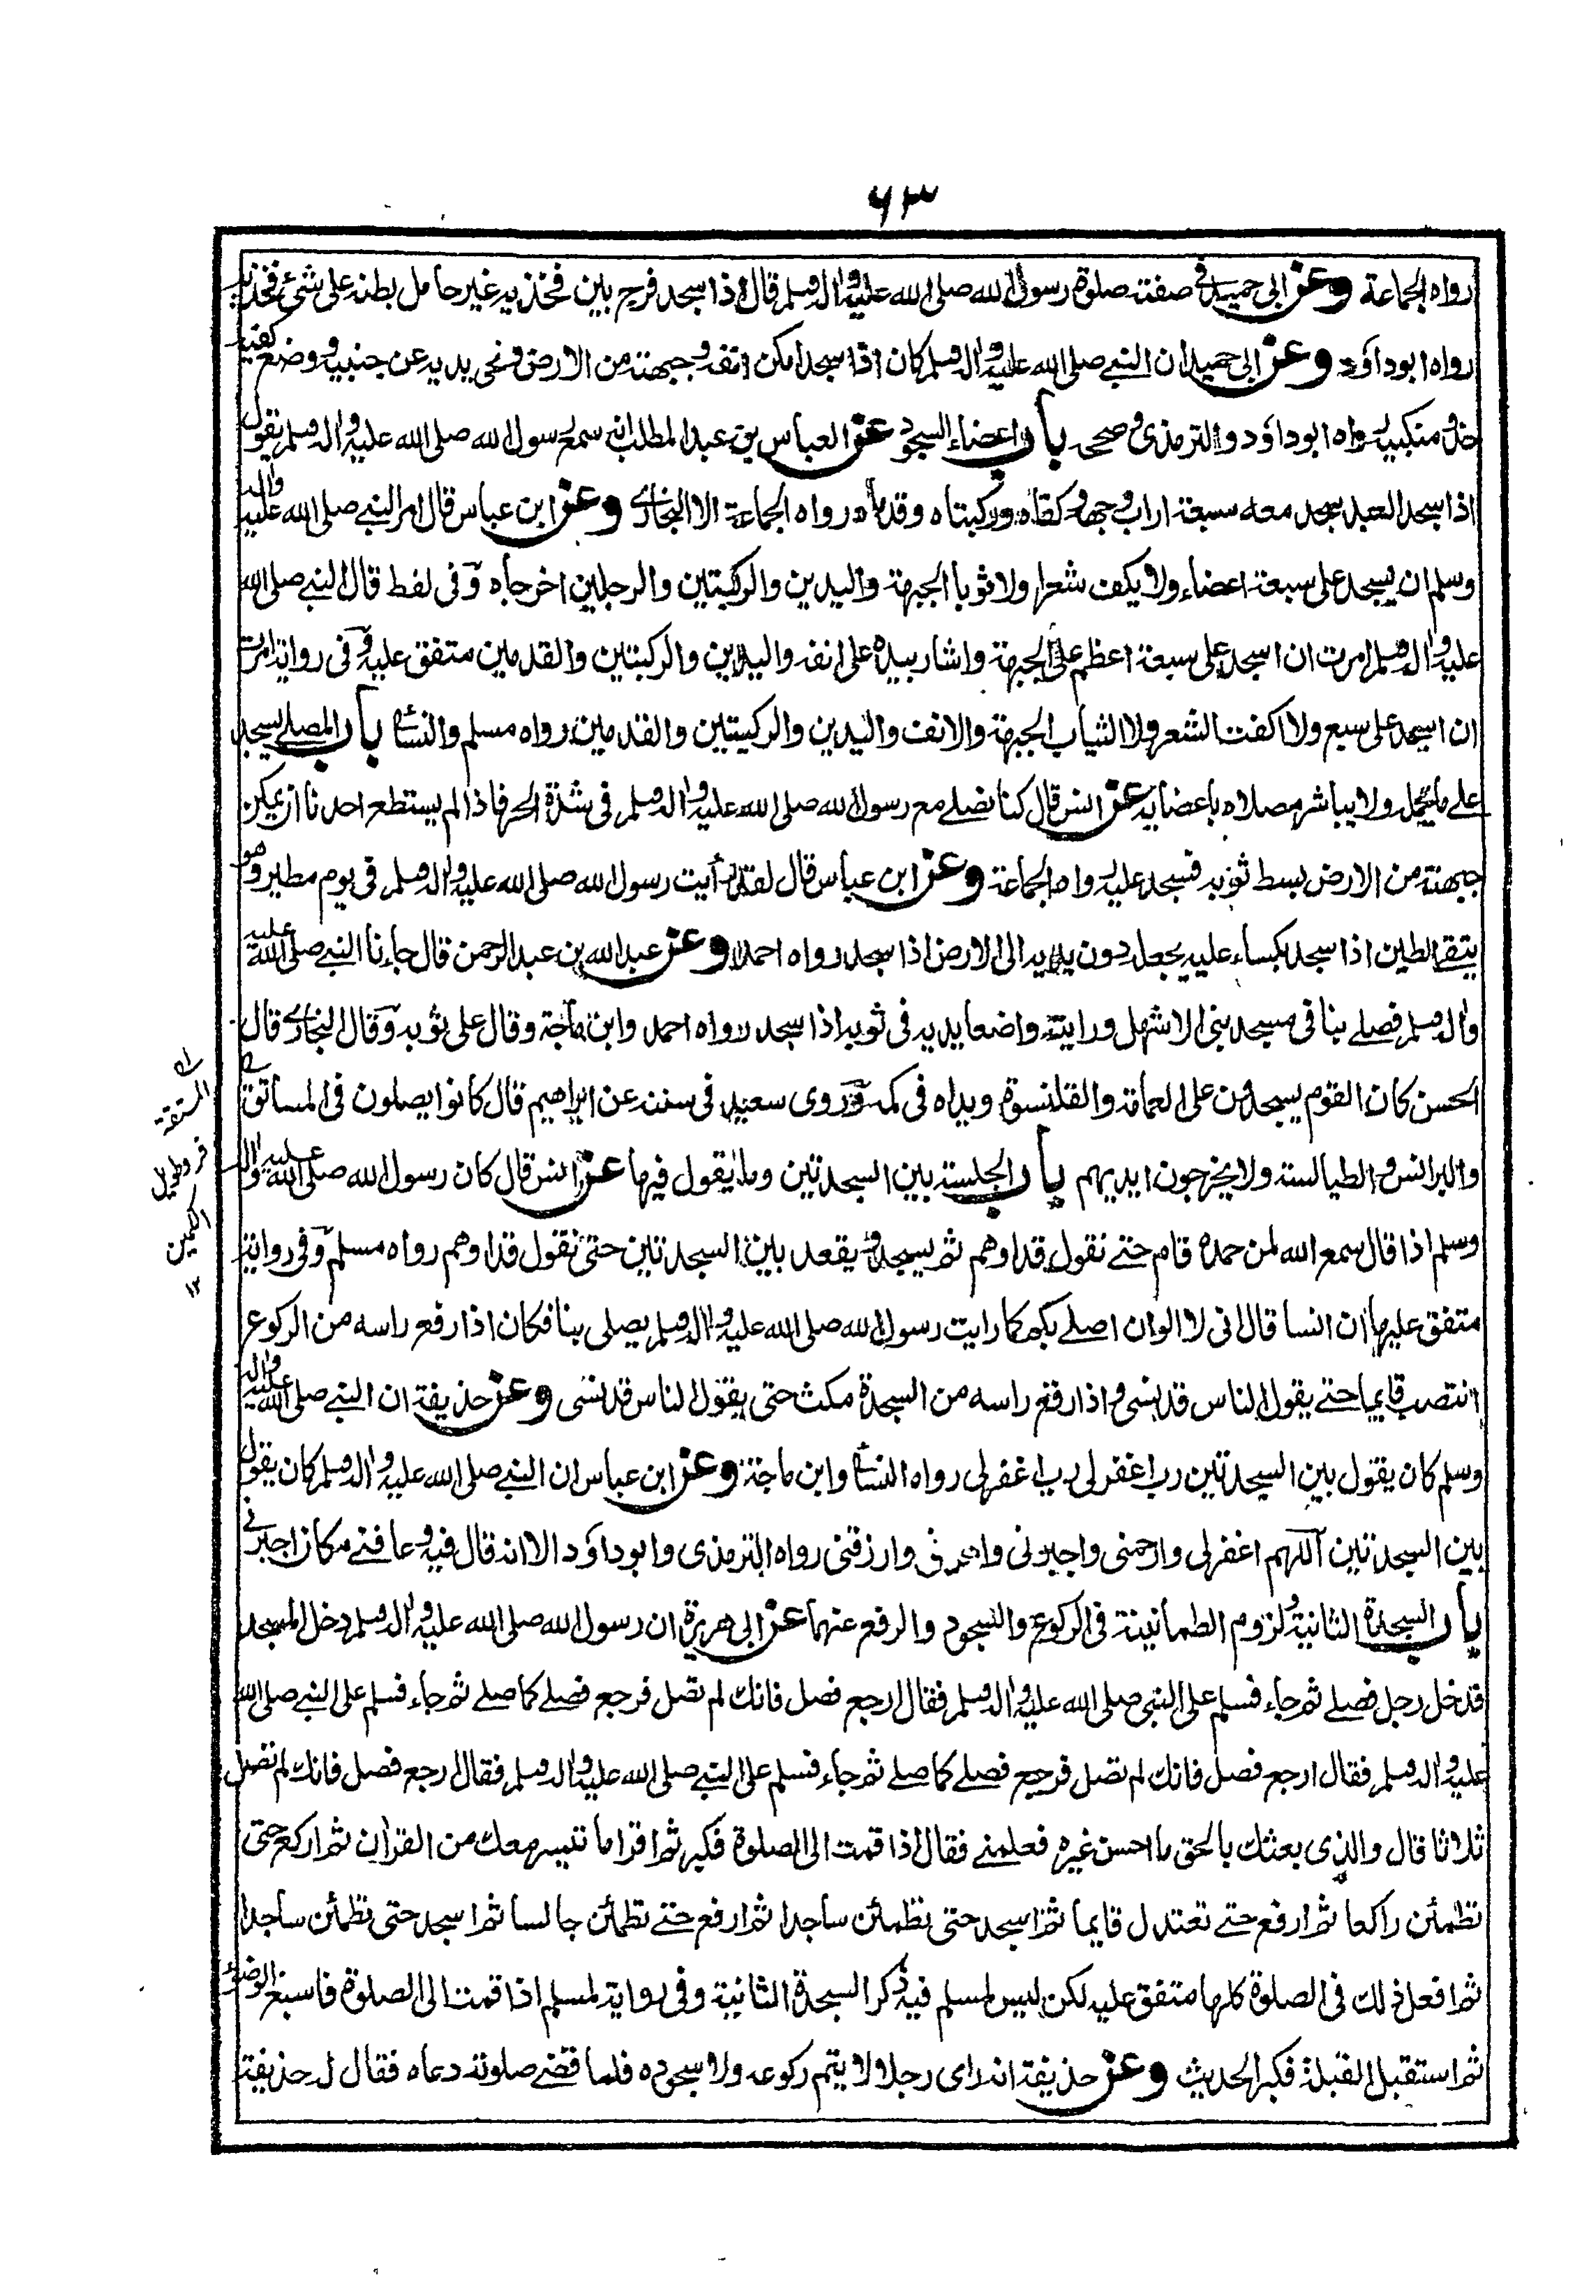 ٦٣
رواه الجماعة وعن ابى حميد فى صفة صلوة رسول الله صلى الله عليه واله وسلم قال اذا سجد فرج بين فخذيه غير حامل بطنه على شئ من فخذيه
رواه ابو داؤد وعن ابى حميد ان النبى صلى الله عليه واله وسلم كان اذا سجد امكن انفه وجبهته من الارض ونحى يديه عن جنبيه ووضع كفيه
حذو منكبيه رواه ابو داؤد والترمذى وصححه باب اعضاء السجود عن العباس بن عبد المطلب انه سمع رسول الله صلى الله عليه واله وسلم يقول
اذا سجد العبد سجد معه سبعة اراب وجهه وكفاه وركبتاه وقدماه رواه الجماعة الا البخارى وعن ابن عباس قال امر النبى صلى الله عليه واله
وسلم ان يسجد على سبعة اعضاء ولا يكف شعرا ولا ثوبا الجبهة واليدين والركبتين والرجلين اخرجاه وفى لفظ قال النبى صلى الله
عليه واله وسلم امرت ان اسجد على سبعة اعظم على الجبهة واشار بيده على انفه واليدين والركبتين والقدمين متفق عليه وفى رواية امرت
ان اسجد على سبع ولا اكفت الشعر ولا الثياب الجبهة والانف واليدين والركبتين والقدمين رواه مسلم والنسائى باب المصلى يسجد
على ما يحمل ولا يباشر مصلاه باعضايه عن انس قال كنا نصلى مع رسول الله صلى الله عليه واله وسلم فى شدة الحر فاذا لم يستطع احدنا ان يمكن
جبهته من الارض بسط ثوبه فسجد عليه رواه الجماعة وعن ابن عباس قال لقد رأيت رسول الله صلى الله عليه واله وسلم فى يوم مطير وهو
يتقى الطين اذا سجد بكساء عليه يجعل دون يديه الى الارض اذا سجد رواه احمد وعن عبد الله بن عبد الرحمن قال جاءنا النبى صلى الله عليه
واله وسلم فصلى بنا فى مسجد بنى الاشهل ورايته واضعا يديه فى ثوبه اذا سجد رواه احمد وابن ماجة وقال على ثوبه وقال البخارى قال
الحسن كان القوم يسجدون على العمامة والقلنسوة ويداه فى كمه وروى سعيد فى سننه عن ابراهيم قال كانوا يصلون فى المساتق
والبرانس والطيالسة ولا يخرجون ايديهم باب الجلسة بين السجدتين وما يقول فيها عن انس قال كان رسول الله صلى الله عليه واله
وسلم اذا قال سمع الله لمن حمده قام حتى نقول قد اوهم ثم يسجد ويقعد بين السجدتين حتى نقول قد اوهم رواه مسلم وفى رواية
متفق عليها ان انسا قال انى لا الو ان اصلى بكم كما رايت رسول الله صلى الله عليه واله وسلم يصلى بنا فكان اذا رفع راسه من الركوع
انتصب قايما حتى يقول الناس قد نسى واذا رفع راسه من السجدة مكث حتى يقول الناس قد نسى وعن حذيفة ان النبى صلى الله عليه واله
وسلم كان يقول بين السجدتين رب اغفر لى رب اغفر لى رواه النسائى وابن ماجة وعن ابن عباس ان النبى صلى الله عليه واله وسلم كان يقول
بين السجدتين اللهم اغفر لى وارحمنى واجبرنى واهدنى وارزقنى رواه الترمذى وابو داؤد الا انه قال فيه وعافنى مكان اجبرنى
باب السجدة الثانية ولزوم الطمانينة فى الركوع والسجود والرفع عنهما عن ابى هريرة ان رسول الله صلى الله عليه واله وسلم دخل المسجد
فدخل رجل فصلى ثم جاء فسلم على النبى صلى الله عليه واله وسلم فقال ارجع فصل فانك لم تصل فرجع فصلى كما صلى ثم جاء فسلم على النبى صلى الله
عليه واله وسلم فقال ارجع فصل فانك لم تصل فرجع فصلى كما صلى ثم جاء فسلم على النبى صلى الله عليه واله وسلم فقال ارجع فصل فانك لم تصل
ثلاثا قال والذى بعثك بالحق ما احسن غيره فعلمنى فقال اذا قمت الى الصلوة فكبر ثم اقرا ما تيسر معك من القران ثم اركع حتى
تطمئن راكعا ثم ارفع حتى تعتدل قايما ثم اسجد حتى تطمئن ساجدا ثم ارفع حتى تطمئن جالسا ثم اسجد حتى تطمئن ساجدا
ثم افعل ذلك فى الصلوة كلها متفق عليه لكن ليس لمسلم فيه ذكر السجدة الثانية وفى رواية لمسلم اذا قمت الى الصلوة فاسبغ الوضوء
ثم استقبل القبلة فكبر الحديث وعن حذيفة انه راى رجلا لا يتم ركوعه ولا سجوده فلما قضى صلوته دعاه فقال له حذيفة
المستقة
فرو طويل
الكمين
١٢